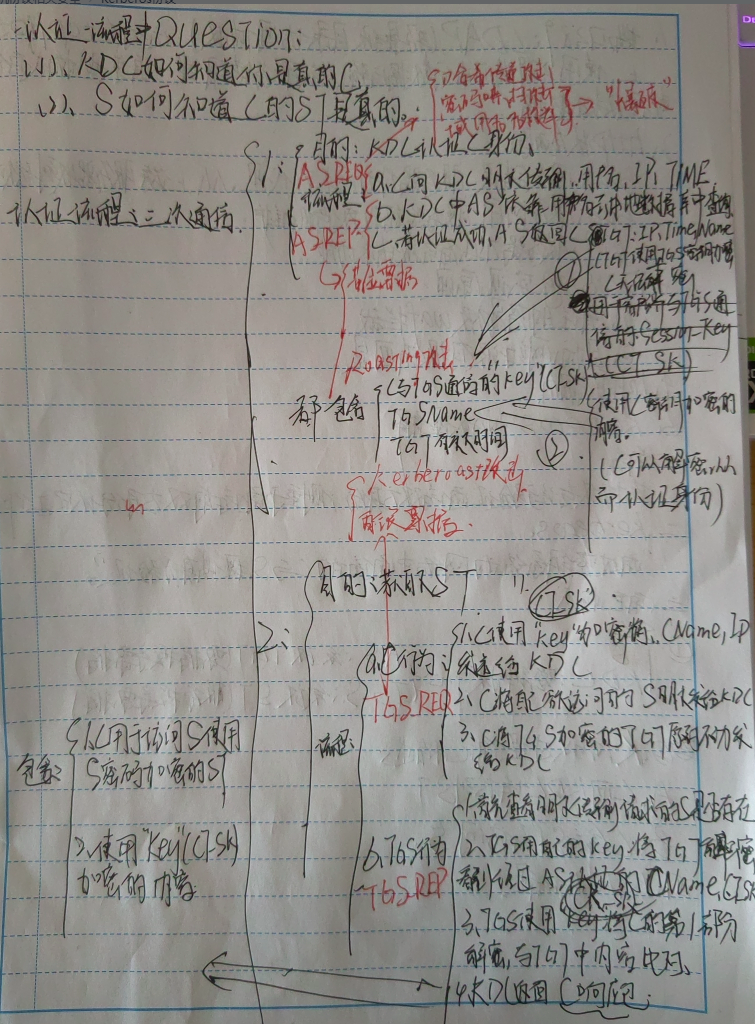 认证流程中Question:
(1)、KDC如何知道你是真的C.
(2)、S如何知道C的ST是真的.
→"爆破"
认证流程:三次通信
1:
目的: KDC认证C身份.
AS_REQ
流程
a.C向KDC明文传输,用户名,IP,TIME
AS_REP
b.KDC中AS
C.若认证成功,AS返回C
TGT:IP,Time,Name
TGT使用TGS密钥加密
用于客户端与TGS通
信的Session-Key
(CT_SK)
黄金票据
①
Roasting攻击
都包含
C与TGS通信的"key"(CT_SK)
TGSName
TGT有效时间
②
使用C密钥加密的
内容。
(C可以解密,从
而认证身份)
Kerberoast攻击
白银票据
2:
目的:获取ST
CT_SK
流程:
a.C行为:
TGS_REQ
1.C使用"key"加密 CName,IP
发送给KDC
2、C将自己欲访问的S明文发给KDC
3、C将TGS加密的TGT原封不动发
给KDC
b.TGS行为
TGS_REP
1.首先查看明文 请求的S是否存在
2.TGS用自己的key.将TGT解密
AS CName,CTSK
3、TGS使用"key"将C的第1部分
解密,与TGT中内容比对.
4.KDC返回C响应包.
包含:
1.C用于访问S使用
S密码加密的ST
2.使用"key"(CT_SK)
加密的内容